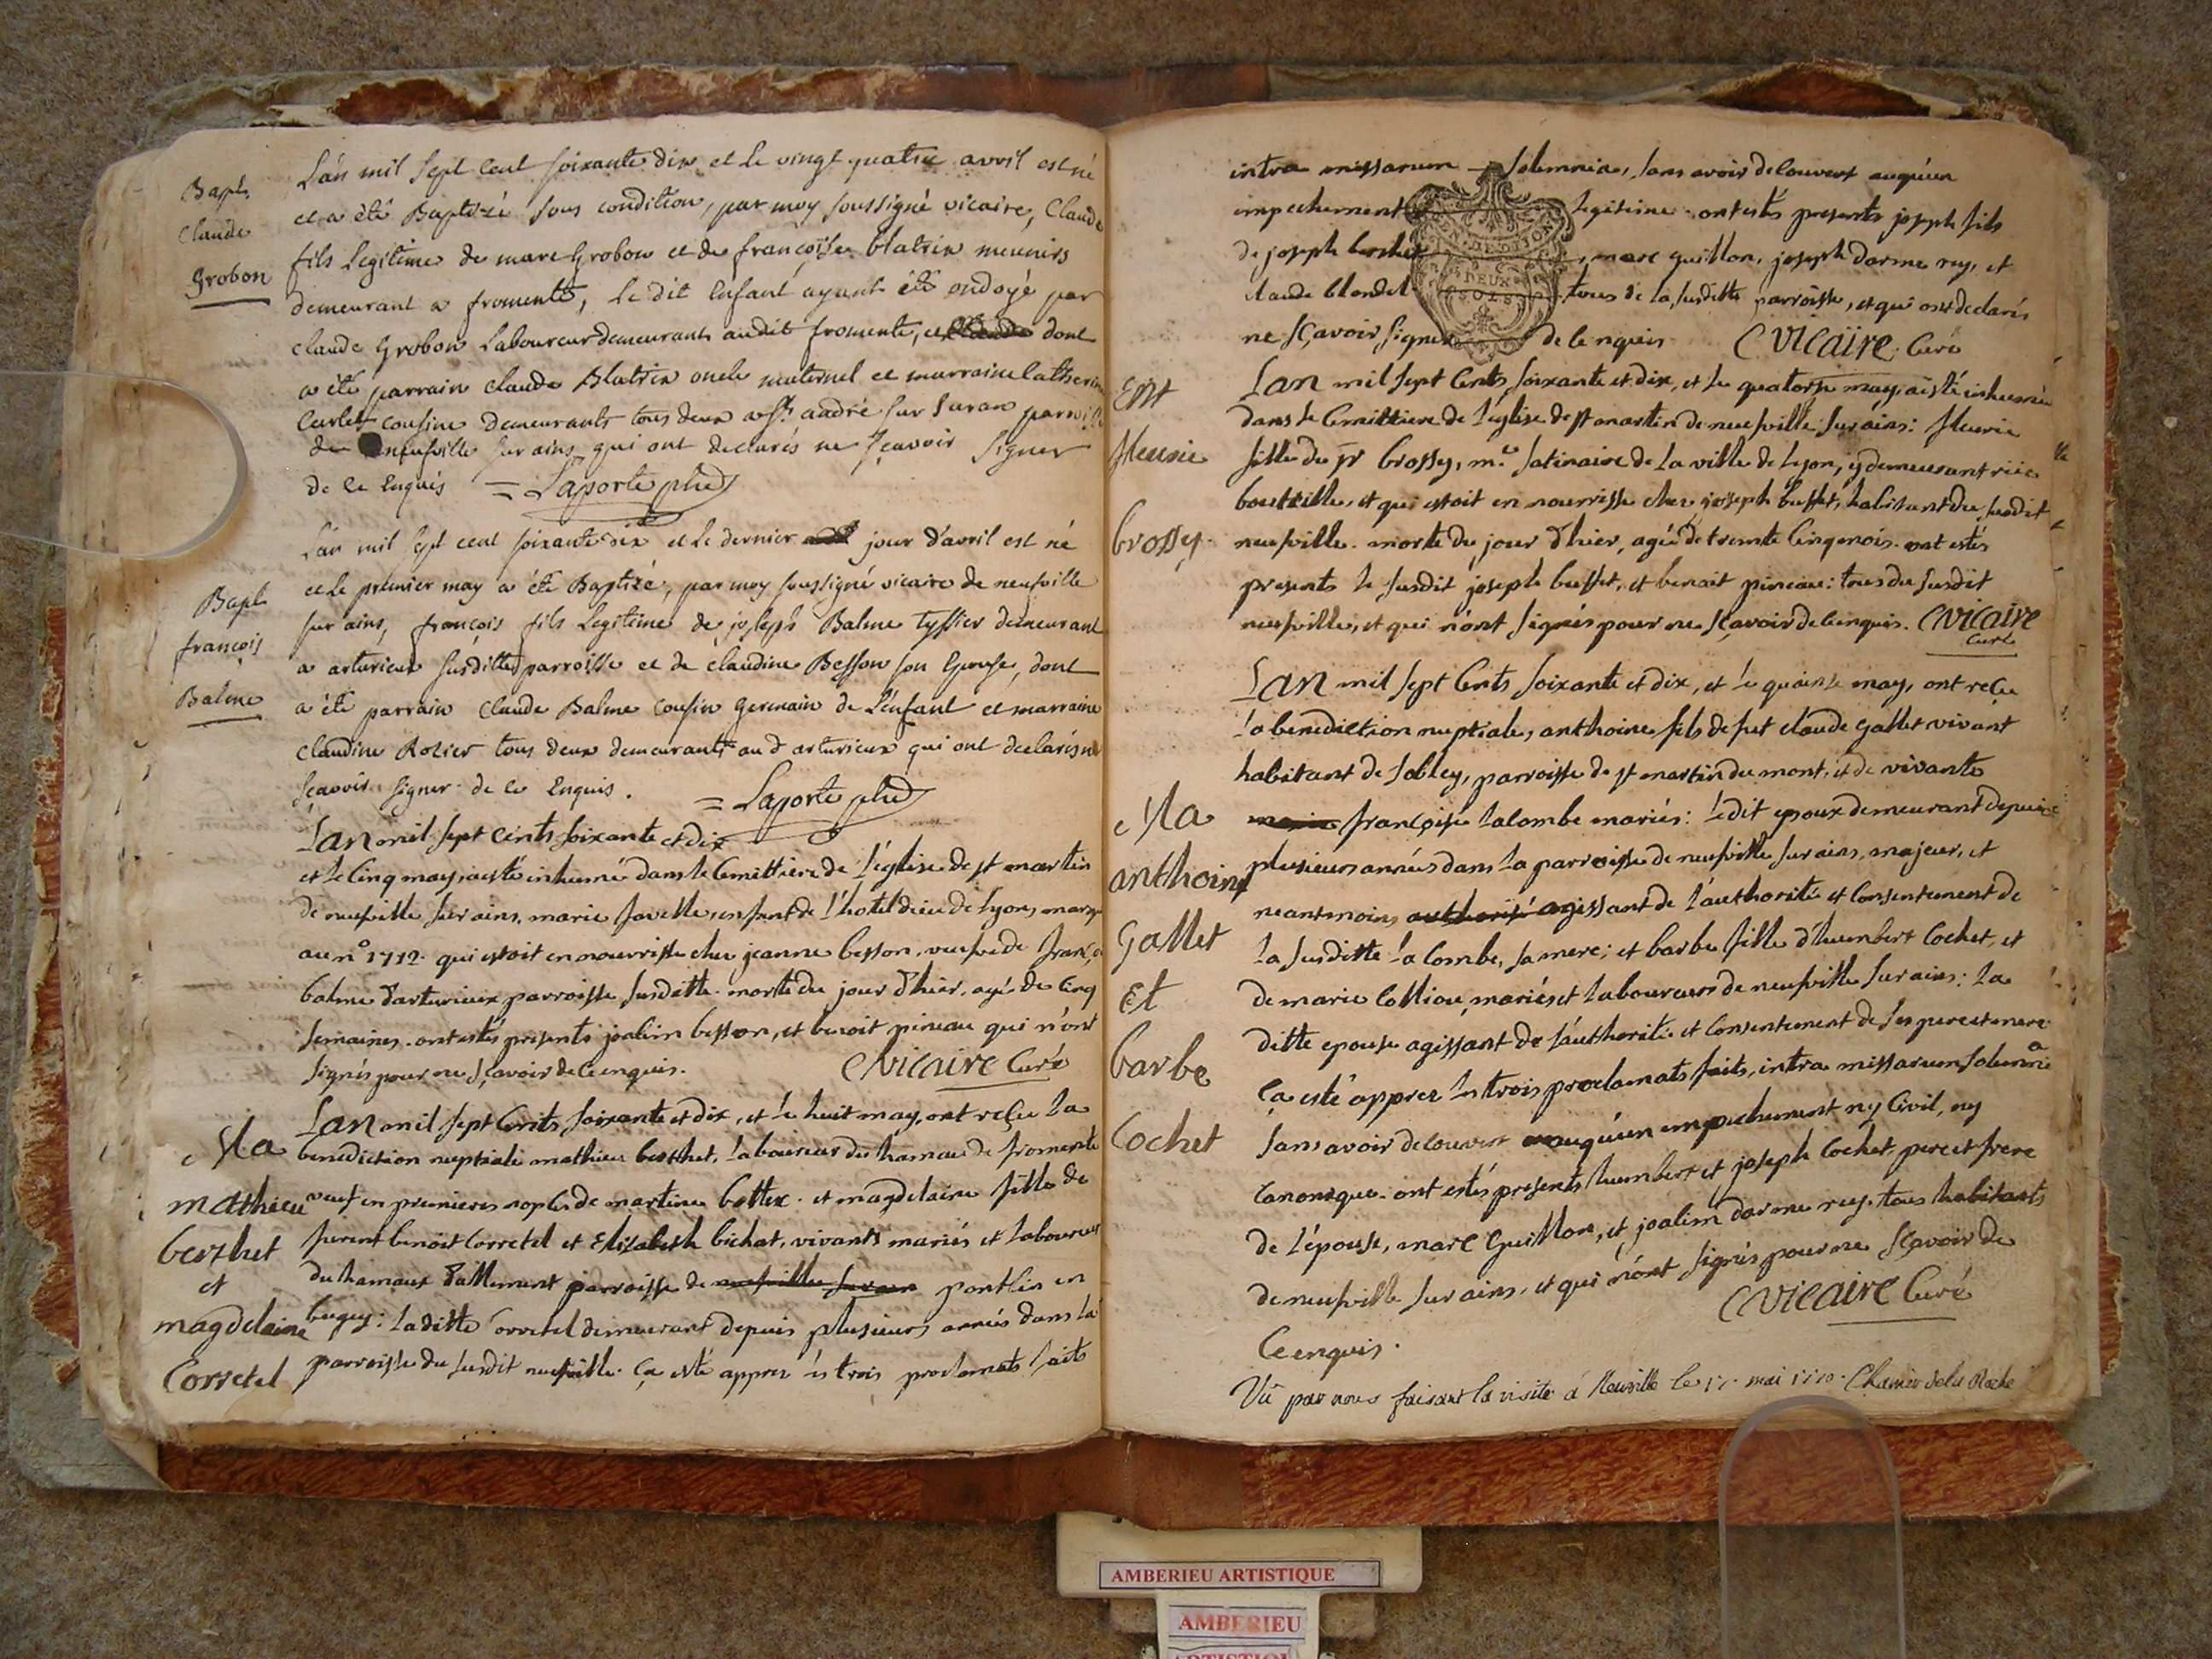 Bapt.
Claude
Grobon
L'an mil sept cent soixante dix et le vingt quatre avril est né
et a été Baptizé sous condition, par moy soussigné vicaire, Claude
fils Legitime de marc Grobon et de françoise blatrix meuniers
demeurant a fromente, le dit Enfant ayant été ondoyé par
claude Grobon Laboureur demeurant audit fromente, et dont
a été parrain claude Blatrix oncle maternel et marraine Catherine
Curlet cousine demeurants tous deux a st. andré sur suran parroisse
de neufville sur ains qui ont declarés ne sçavoir signer
de ce Enquis = Laporte ptre
Bapt
françois
Balme
L'an mil sept cent soixante dix et le dernier jour d'avril est né
et le premier may a été Baptizé, par moy soussigné vicaire de neufville
sur ains, françois fils Legitime de joseph Balme tyssier demeurant
a arturieux susditte parroisse et de claudine Besson son Epouse, dont
a été parrain claude Balme cousin Germain de L'enfant et marraine
claudine Rozier tous deux demeurants aud arturieux qui ont declarés ne
sçavoir signer de ce Enquis. = Laporte ptre
Lan mil sept cents soixante et dix
et le cinq may, a esté inhumé dans le Cemettiere de l'église de st martin
de neufville sur ains, marie favelle, enfant de l'hotel dieu de Lyon, marqu
au n° 1712. qui estoit en nourrisse chez jeanne besson, veufve de franço
balme d'arturieux parroisse susditte. morte du jour d'hier, agée de cinq
semaines. ont estés presents joalim besson, et benoit pineau qui n'ont
signés pour ne sçavoir de ce enquis. C Vicaire Curé
Ma
mathieu
berthet
et
magdelaine
Corretel
Lan mil sept cents soixante et dix, et le huit may, ont reçu la
benediction nuptiale mathieu berthet, laboureur du hameau de fromente
veuf en premieres nopces de martine bottex. et magdelaine fille de
benoit Corretel et Elizabeth bichat, vivants mariés et laboureurs
du hameaux d'allement parroisse de neufville sur ain pontlin en
bugey: laditte Corretel demeurant depuis plusieurs années dans la
parroisse du susdit neufville. ça esté apprez les trois proclamats faits
intra missarum solemnia, sans avoir decouvert auqu'un
empechement legitime. ont estés presents joseph fils
de joseph berthet, marc guillon, joseph darme rey, et
claude blondel tous de la susditte parroisse, et qui ont declarés
ne sçavoir signer de ce nquis C Vicaire Curé
DEUX
SOLS
Ent
fleurie
brossy.
Lan mil sept Cents soixante et dix, et le quatorze may, a esté inhumée
dans le Cemettiere de l'église de st martin de neufville sur ains: fleurie
fille de sr brossy, me. satinaire de la ville de Lyon, y demeurant rüe
bouteille, et qui estoit en nourrisse chez joseph buffet, habitant du susdit
neufville. morte du jour d'hier, agée de trente Cinq mois. ont estés
presents le susdit joseph buffet, et benoit pineau: tous du susdit
neufville, et qui n'ont signés pour ne sçavoir de ce enquis. C Vicaire
Curé
Ma
anthoine
Gallet
Et
barbe
Cochet
Lan mil sept Cents soixante et dix, et le quainse may, ont reçu
la benediction nuptiale, anthoine fils de fut claude gallet vivant
habitant de Soblay, parroisse de st martin du mont, et de vivante
françoise lalombe mariés: ledit epoux demeurant depuis
plusieurs années dans la parroisse de neufville sur ains, majeur, et
neantmoins authorisé agissant de l'authorité et Consentement de
la susditte la Combe, sa mere; et barbe fille d'humbert Cochet, et
de marie Colliou, mariés et laboureurs de neufville sur ains: la
ditte epouse agissant de l'authorité et Consentement de ses pere et mere
ça esté apprez les trois proclamats faits, intra missarum solemnia
sans avoir decouvert auqu'un empechement ny Civil, ny
Canonique. ont estés presents humbert et joseph Cochet, pere et frere
de l'épouse, marc Guillon, et joalim darme rey. tous habitants
de neufville sur ains, et qui n'ont signés pour ne sçavoir de
Ce enquis. C Vicaire Curé
Vû par nous faisant la visite à Neuville le mai 1770. Charrier dela Roche
AMBERIEU ARTISTIQUE
AMBERIEU
ARTISTIQUE